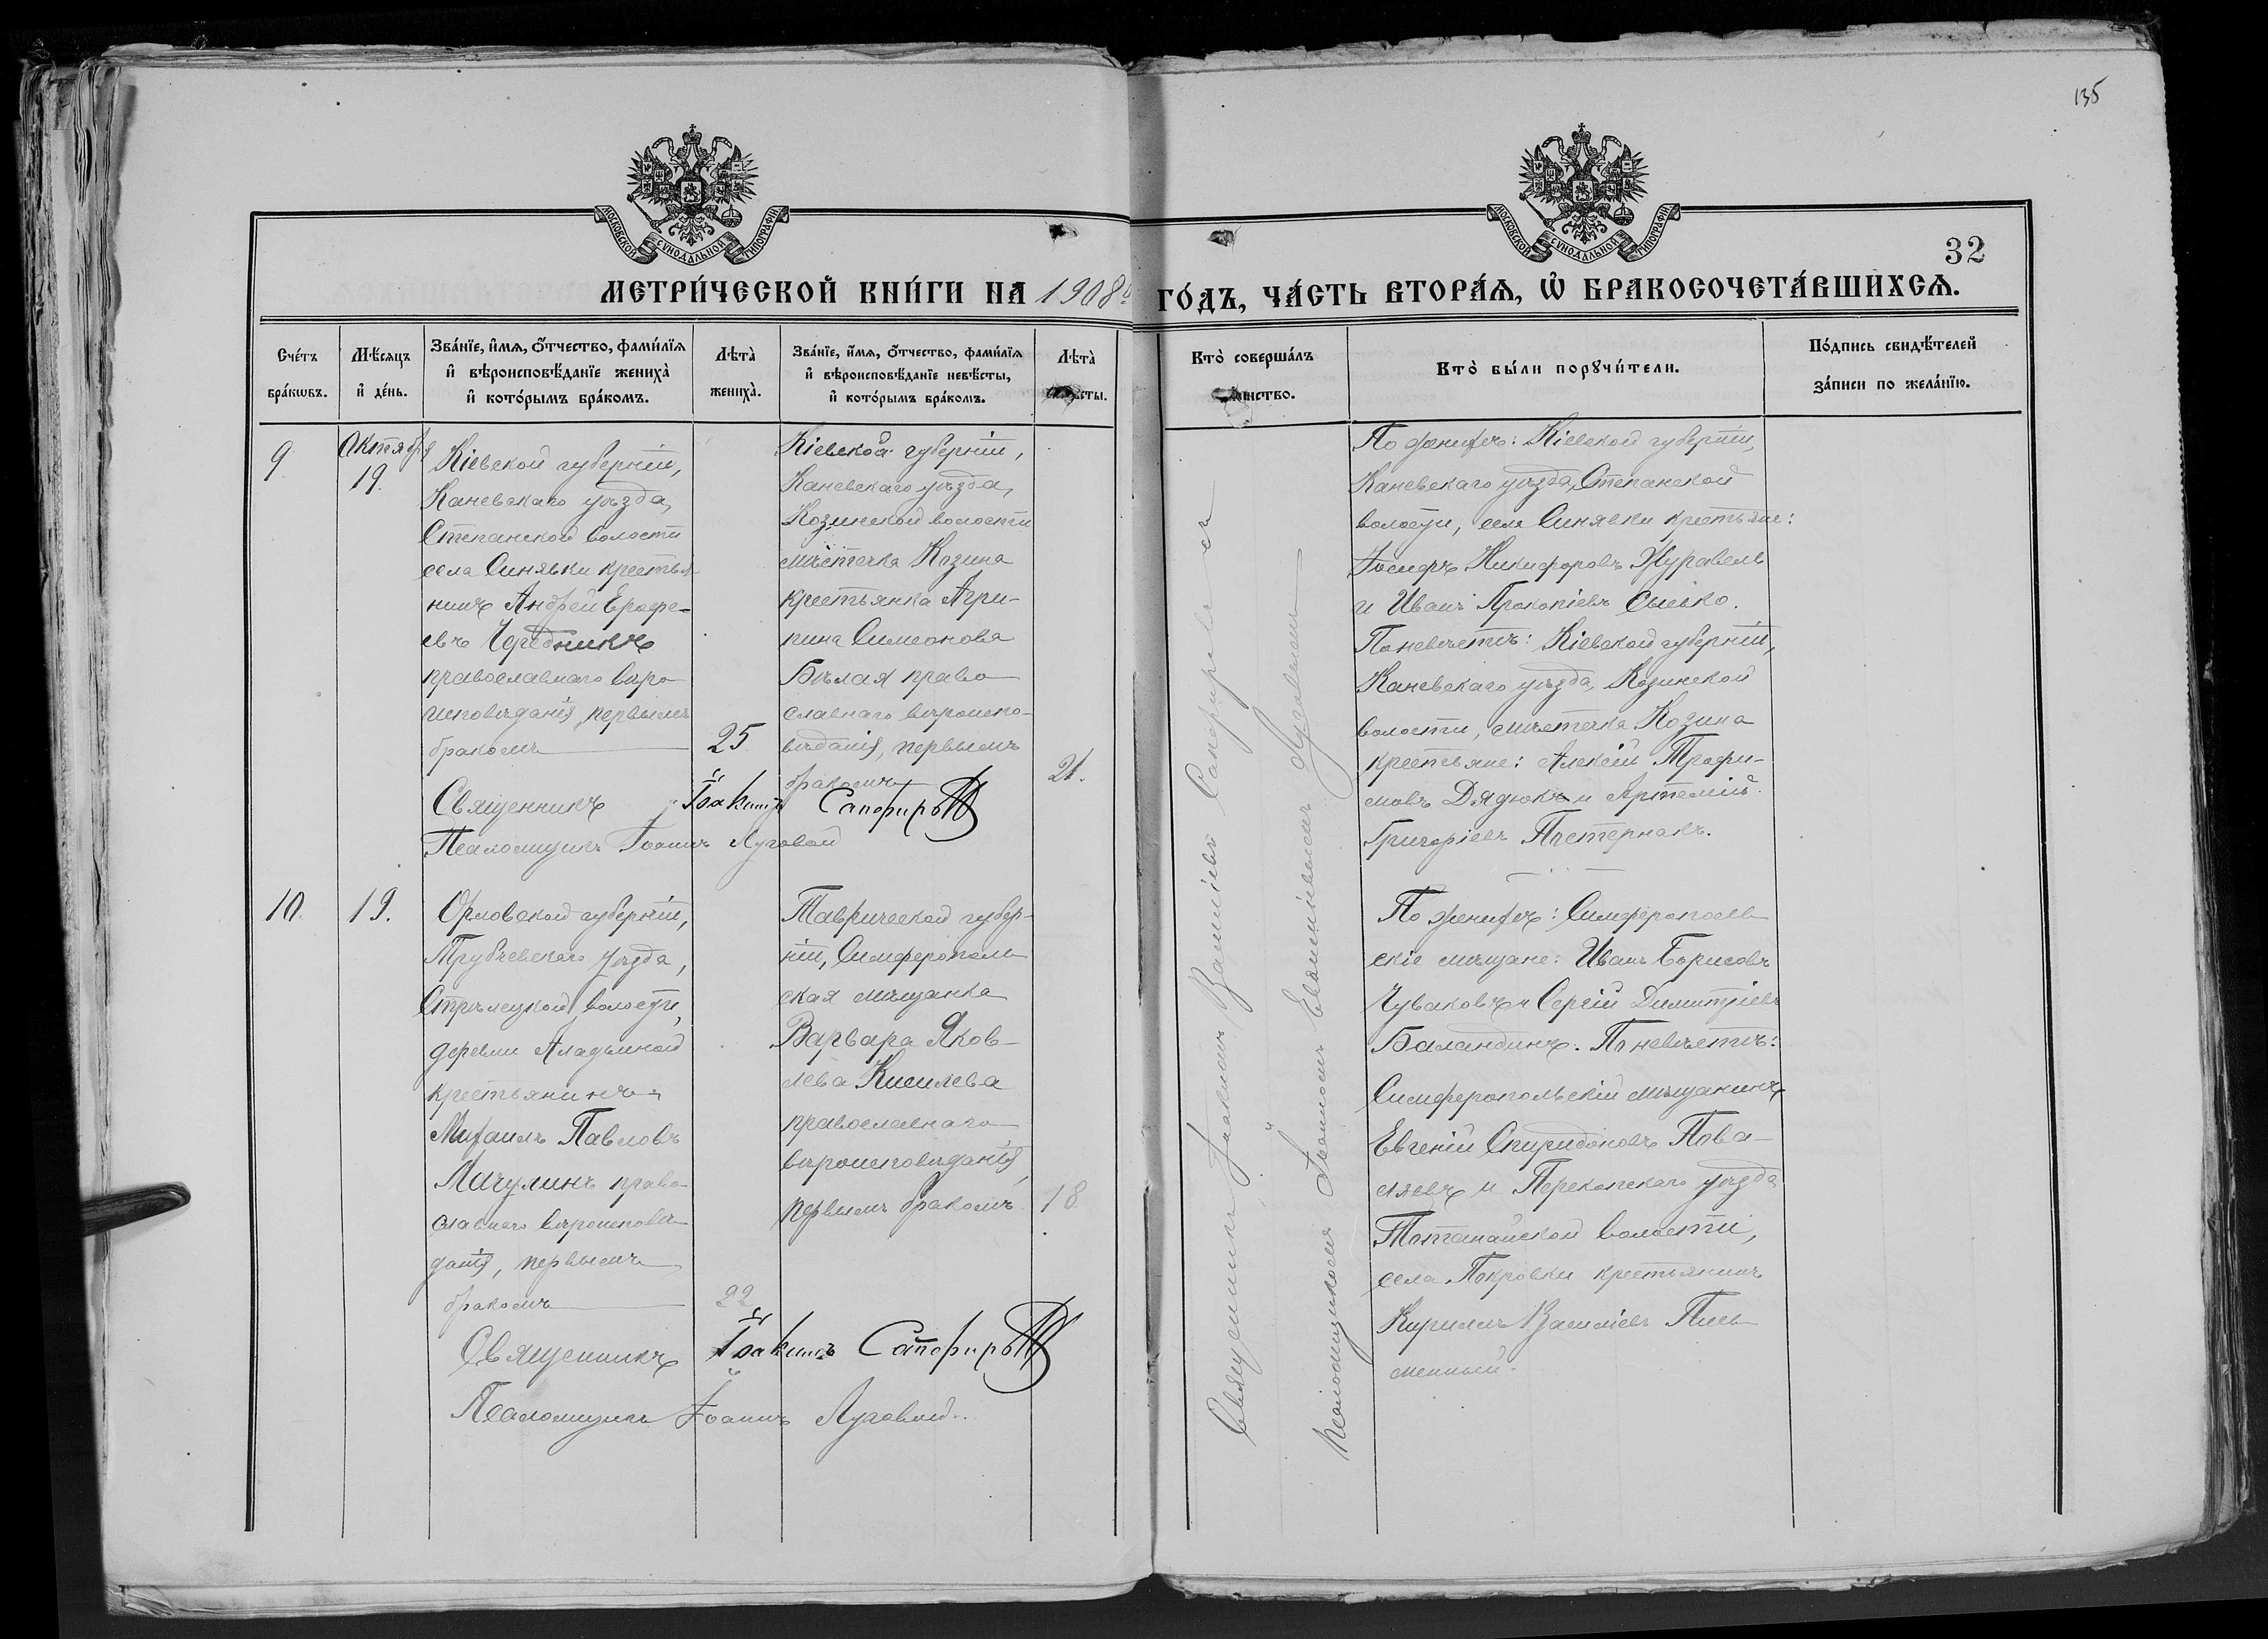 135
МОСКОВСКОЙ СѴНОДАЛЬНОЙ ТИПОГРАФІИ
МОСКОВСКОЙ СѴНОДАЛЬНОЙ ТИПОГРАФІИ
32
МЕТРИ́ЧЕСКОЙ КНИ́ГИ НА 1908 ГО́ДЪ, ЧА́СТЬ ВТОРА́Ѧ, Ѡ҆ БРАКОСОЧЕТА́ВШИХСѦ.
Сче́тъ
бра́кѡвъ.
Мѣ́сѧцъ
и҆ де́нь.
Зва́нїе, и҆́мѧ, ѻ҆́тчество, фами́лїѧ
и҆ вѣроисповѣ́данїе жениха̀
и҆ кото́рымъ бра́комъ.
Лѣта̀
жениха̀.
Зва́нїе, и҆́мѧ, ѻ҆́тчество, фами́лїѧ
и҆ вѣроисповѣ́данїе невѣ́сты,
и҆ кото́рымъ бра́комъ.
Лѣта̀
Кто̀ соверша́лъ
Кто̀ бы́ли порꙋчи́тели.
По́дпись свидѣ́телей
за́писи по жела́нїю.
9
Октября
19.
Кіевской губерніи,
Каневскаго уѣзда,
Степанской волости
села Синявки крестья-
нинъ Андрей Ерофе-
евъ Чередникъ
православнаго вѣро-
исповѣданія, первымъ
бракомъ
25.
Кіевской губерніи,
Каневскаго уѣзда,
Козинской волости
мѣстечка Козина
крестьянка Агри-
пина Симеонова
Бѣлая право-
славнаго вѣроиспо-
вѣданія, первымъ
бракомъ
21.
Священникъ Іоакимъ Сапфировъ
Псаломщикъ Іоаннъ Луговой
По женихѣ: Кіевской губерніи,
Каневскаго уѣзда, Степанской
волости, села Синявки крестьяне:
Іосифъ Никифоровъ Журавель
и Иванъ Прокопіевъ
По невѣстѣ: Кіевской губерніи,
Каневскаго уѣзда, Козинской
волости, мѣстечка Козина
крестьяне: Алексій Трофи-
мовъ Дядюкъ и Артемій
Григоріевъ Пастернакъ.
10.
19.
Орловской губерніи,
Трубчевскаго уѣзда,
Стрѣлецкой волости,
деревни Аладьиной
крестьянинъ
Михаилъ Павловъ
Мачулинъ право-
славнаго вѣроисповѣ-
данія, первымъ
бракомъ
22
Таврической губер-
ніи, Симферополь-
ская мѣщанка
Варвара Яков-
лева Киселева
православнаго
вѣроисповѣданія,
первымъ бракомъ.
18
Священникъ Іоакимъ Сапфировъ
Псаломщикъ Іоаннъ Луговой.
Священникъ Іоакимъ Василіевъ Сапфировъ съ
псаломщикомъ Іоанномъ Евѳиміевымъ Луговымъ
По женихѣ: Симферополь-
скіе мѣщане: Иванъ Борисовъ
Чуваковъ и Сергій Димитріевъ
Баландинъ. По невѣстѣ:
Симферопольскій мѣщанинъ
Евгеній Спиридоновъ Пова-
ляевъ и Перекопскаго уѣзда
Тотанайской волости,
села Покровки крестьянинъ
Кириллъ Василіевъ Пись-
менный.